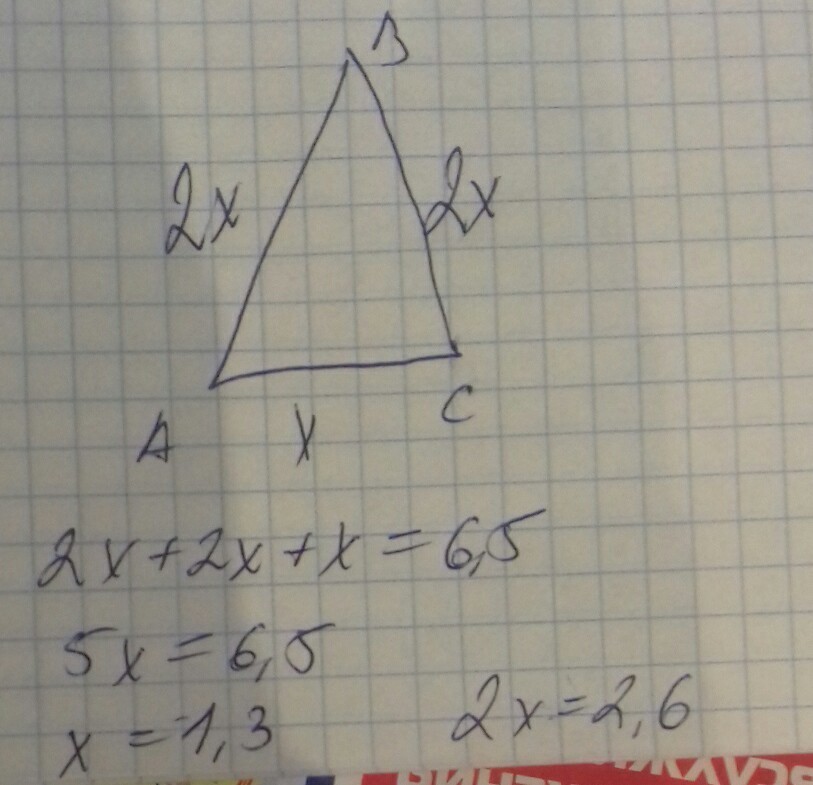 B
2x 2x
A x C
2x+2x+x=6,5
5x=6,5
x=1,3 2x=2,6